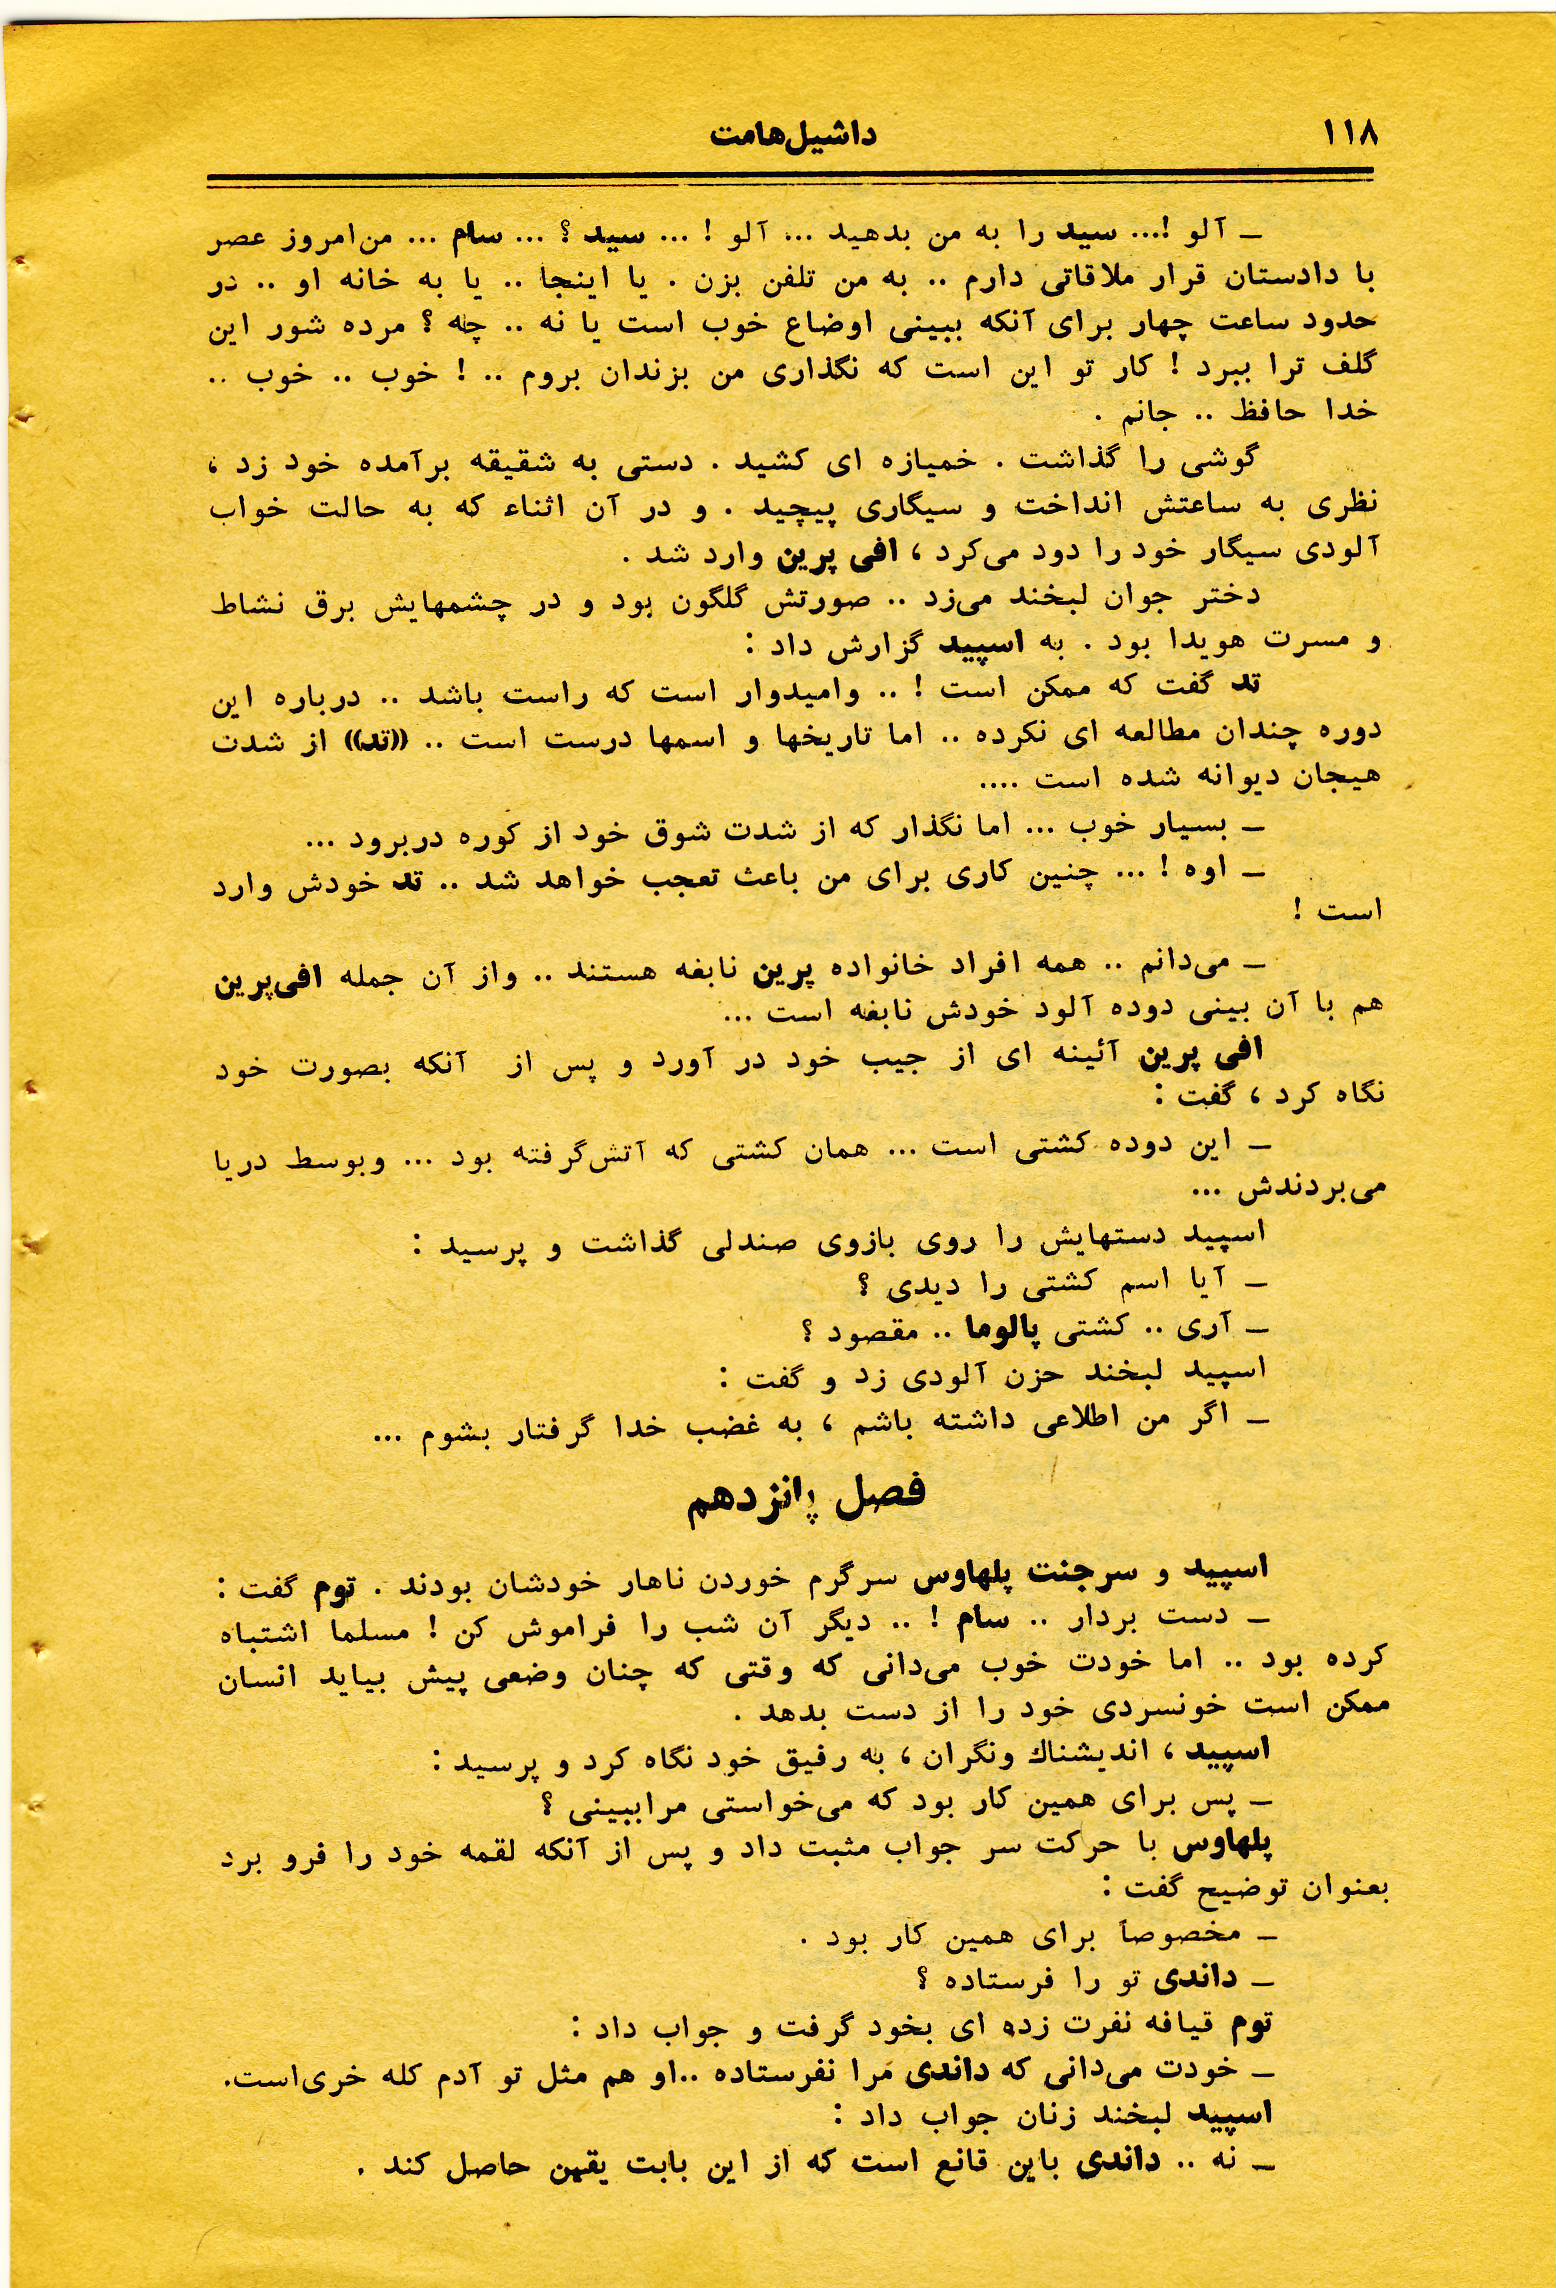 ۱۱۸
داشیل‌هامت
ـ آلو !... سید را به من بدهید ... آلو ! ... سید ؟ ... سام ... من‌امروز عصر
با دادستان قرار ملاقاتی دارم .. به من تلفن بزن . یا اینجا .. یا به خانه او .. در
حدود ساعت چهار برای آنکه ببینی اوضاع خوب است یا نه .. چه ؟ مرده شور این
گلف ترا ببرد ! کار تو این است که نگذاری من بزندان بروم .. ! خوب .. خوب ..
خدا حافظ .. جانم .
گوشی را گذاشت . خمیازه ای کشید . دستی به شقیقه برآمده خود زد ،
نظری به ساعتش انداخت و سیگاری پیچید . و در آن اثناء که به حالت خواب
آلودی سیگار خود را دود می‌کرد ، افی پرین وارد شد .
دختر جوان لبخند می‌زد .. صورتش گلگون بود و در چشمهایش برق نشاط
و مسرت هویدا بود . به اسپید گزارش داد :
تد گفت که ممکن است ! .. وامیدوار است که راست باشد .. درباره این
دوره چندان مطالعه ای نکرده .. اما تاریخها و اسمها درست است .. ((تد)) از شدت
هیجان دیوانه شده است ....
ـ بسیار خوب ... اما نگذار که از شدت شوق خود از کوره دربرود ...
ـ اوه ! ... چنین کاری برای من باعث تعجب خواهد شد .. تد خودش وارد
است !
ـ می‌دانم .. همه افراد خانواده پرین نابغه هستند .. واز آن جمله افی‌پرین
هم با آن بینی دوده آلود خودش نابغه است ...
افی پرین آئینه ای از جیب خود در آورد و پس از آنکه بصورت خود
نگاه کرد ، گفت :
ـ این دوده کشتی است ... همان کشتی که آتش‌گرفته بود ... وبوسط دریا
می‌بردندش ...
اسپید دستهایش را روی بازوی صندلی گذاشت و پرسید :
ـ آیا اسم کشتی را دیدی ؟
ـ آری .. کشتی پالوما .. مقصود ؟
اسپید لبخند حزن آلودی زد و گفت :
ـ اگر من اطلاعی داشته باشم ، به غضب خدا گرفتار بشوم ...
فصل پانزدهم
اسپید و سرجنت پلهاوس سرگرم خوردن ناهار خودشان بودند . توم گفت :
ـ دست بردار .. سام ! .. دیگر آن شب را فراموش کن ! مسلما اشتباه
کرده بود .. اما خودت خوب می‌دانی که وقتی که چنان وضعی پیش بیاید انسان
ممکن است خونسردی خود را از دست بدهد .
اسپید ، اندیشناك ونگران ، به رفیق خود نگاه کرد و پرسید :
ـ پس برای همین کار بود که می‌خواستی مراببینی ؟
پلهاوس با حرکت سر جواب مثبت داد و پس از آنکه لقمه خود را فرو برد
بعنوان توضیح گفت :
ـ مخصوصاً برای همین کار بود .
ـ داندی تو را فرستاده ؟
توم قیافه نفرت زده ای بخود گرفت و جواب داد :
ـ خودت می‌دانی که داندی مرا نفرستاده ..او هم مثل تو آدم کله خری‌است.
اسپید لبخند زنان جواب داد :
ـ نه .. داندی باین قانع است که از این بابت یقین حاصل کند .